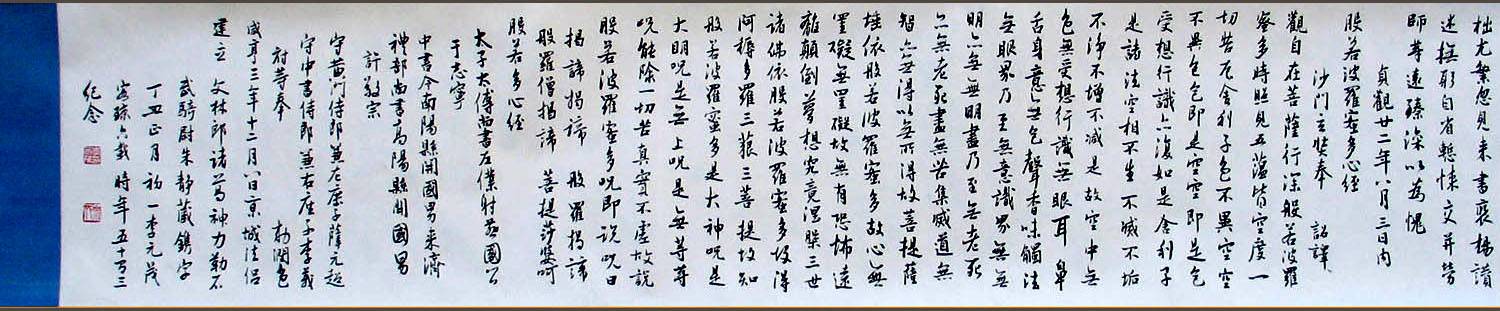 拙尤繁忽見来書襃揚讃
述撫躬自省慙悚交并勞
師等遠臻深以為愧
貞觀廿二年八月三日内
般若波羅蜜多心經
沙門玄奘奉 詔譯
觀自在菩薩行深般若波羅
蜜多時照見五蘊皆空度一
切苦厄舍利子色不異空空
不異色色即是空空即是色
受想行識亦復如是舍利子
是諸法空相不生不滅不垢
不浄不增不減是故空中無
色無受想行識無眼耳鼻
舌身意無色聲香味觸法
無眼界乃至無意識界無無
明亦無無明盡乃至無老死
亦無老死盡無苦集滅道無
智亦無得以無所得故菩提薩
埵依般若波羅蜜多故心無
罣礙無罣礙故無有恐怖遠
離顛倒夢想究竟涅槃三世
諸佛依般若波羅蜜多故得
阿耨多羅三藐三菩提故知
般若波羅蜜多是大神呪是
大明呪是無上呪是無等等
呪能除一切苦真實不虛故說
般若波羅蜜多呪即說呪曰
揭諦揭諦 般羅揭諦
般羅僧揭諦 菩提莎婆呵
般若多心經
太子太傅尚書左僕射燕國公
于志寧
中書令南陽縣開國男来濟
禮部尚書高陽縣開國男
許敬宗
守黄門侍郎兼左庶子薛元超
守中書侍郎兼右庶子李義
府等奉 勅潤色
咸亨三年十二月八日京城法侶
建立 文林郎諸葛神力勒石
武騎尉朱静藏鐫字
丁丑正月初一李元茂
客琼六载時年五十有三
纪念